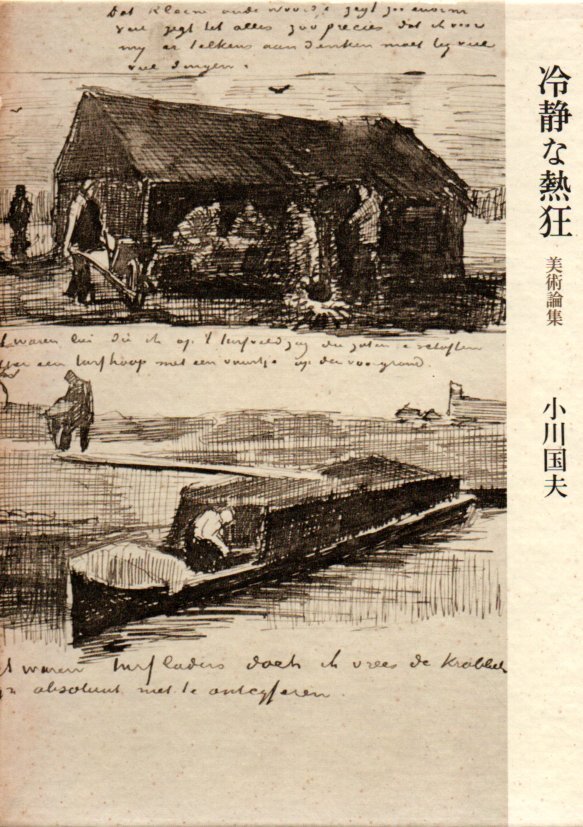 Dat kleine oude vrouwtje zegt zoo enorm
veel zegt het alles zoo precies dat ik voor
my er telkens aan denken moet by veel
veel dingen.
冷静な熱狂
美術論集
小川国夫
t waren lui die ik op 't turfveld zag die zaten te schaften
een turfhoop met een vuurtje op den voorgrond.
t waren turfladers doch ik vrees de krabbel
absoluut niet te ontcyferen.